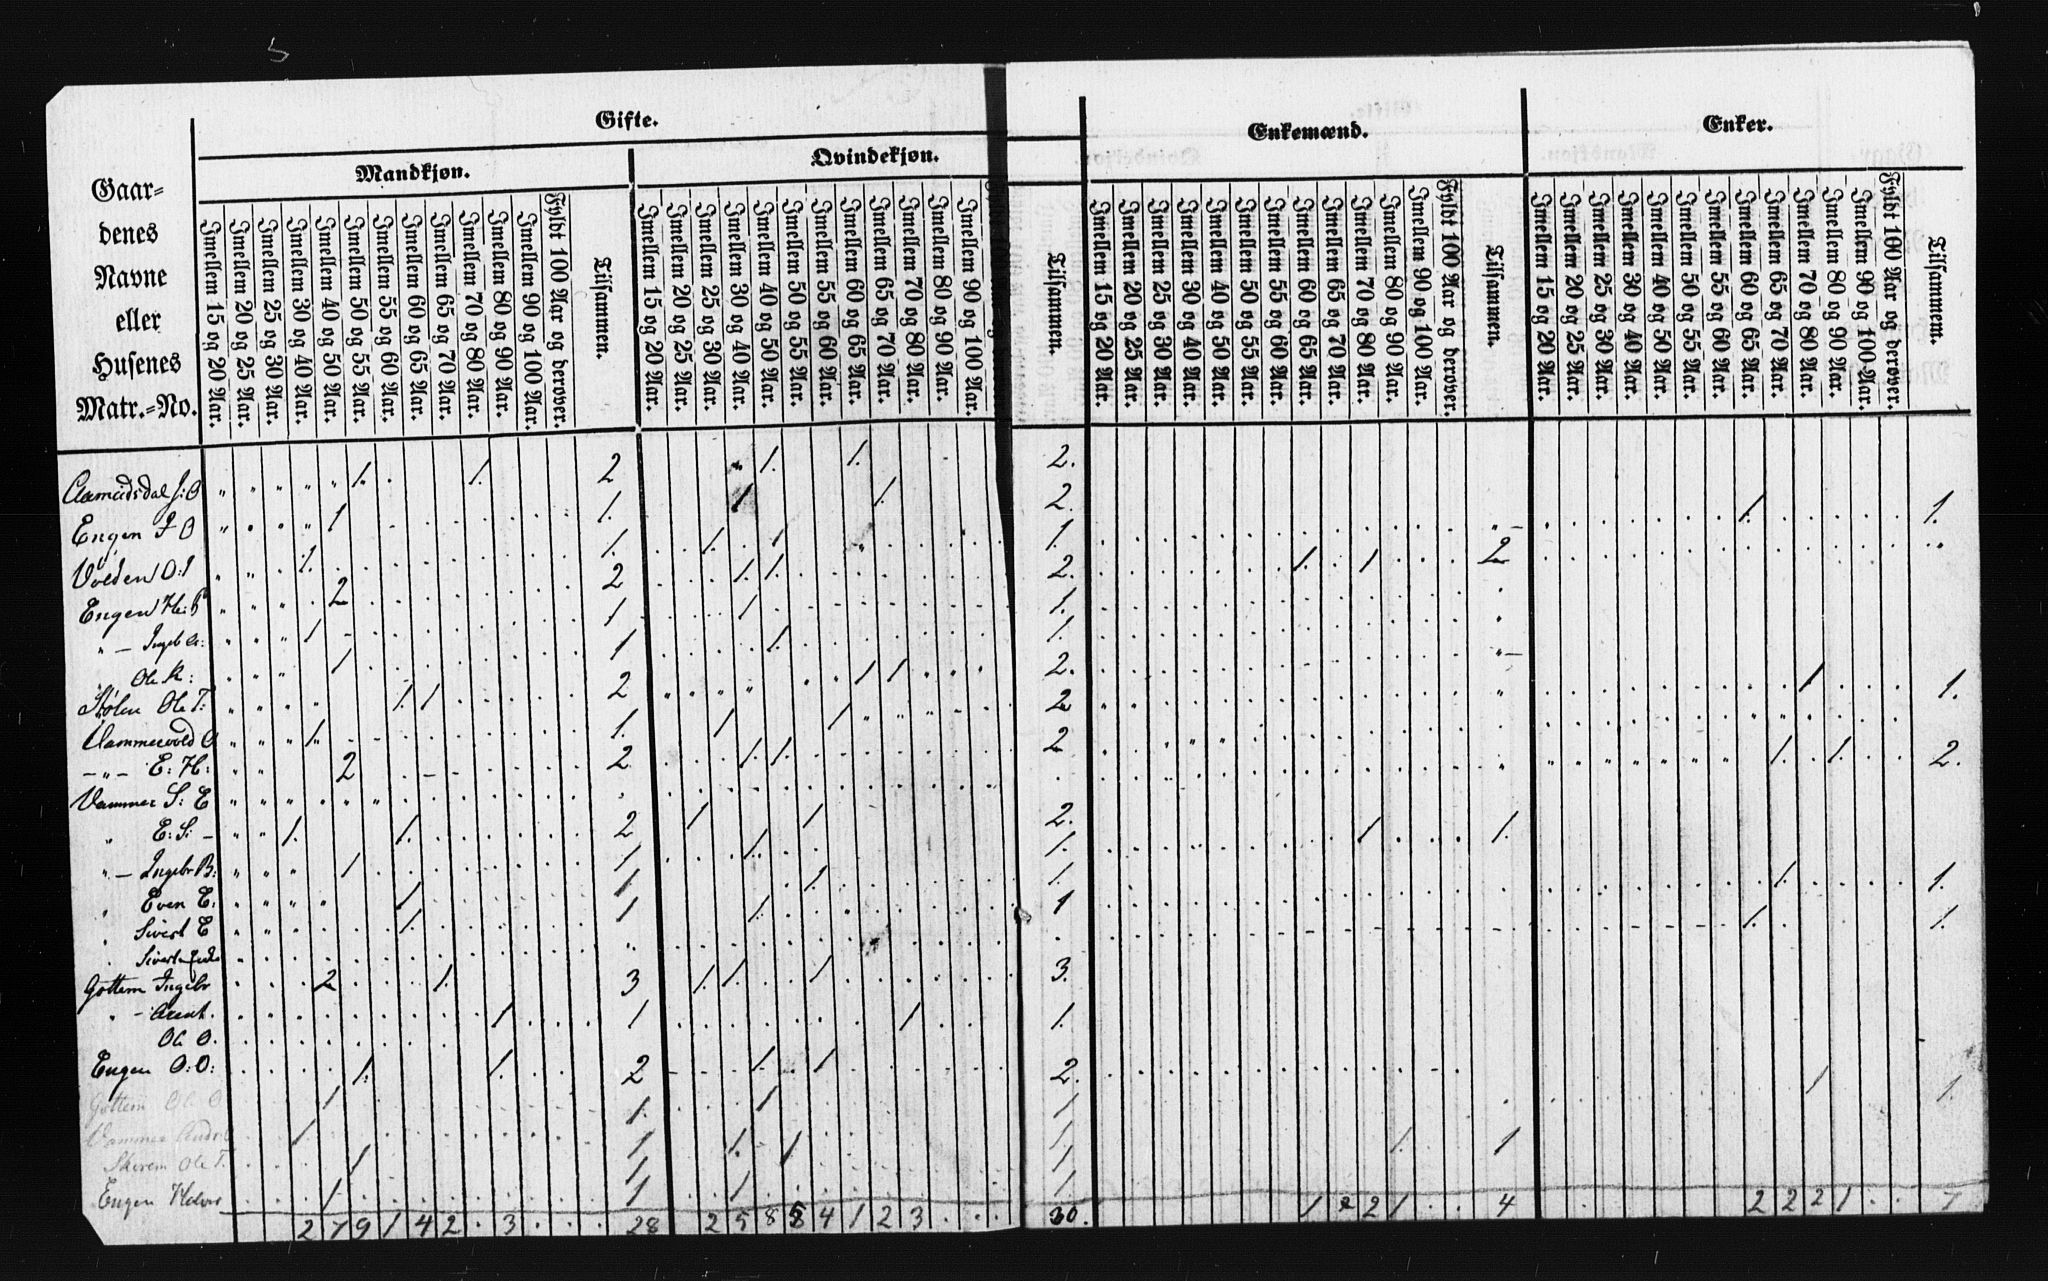 Gifte.
Enkemænd.
Enker.
Mandkjøn.
Qvindekjøn.
Gaar=
denes
Navne
eller
Husenes
Matr.=No.
Imellem 15 og 20 Aar.
Imellem 20 og 25 Aar.
Imellem 25 og 30 Aar.
Imellem 30 og 40 Aar.
Imellem 40 og 50 Aar.
Imellem 50 og 55 Aar.
Imellem 55 og 60 Aar.
Imellem 60 og 65 Aar.
Imellem 65 og 70 Aar.
Imellem 70 og 80 Aar.
Imellem 80 og 90 Aar.
Imellem 90 og 100 Aar.
Fyldt 100 Aar og derover.
Tilsammen.
Imellem 15 og 20 Aar.
Imellem 20 og 25 Aar.
Imellem 25 og 30 Aar.
Imellem 30 og 40 Aar.
Imellem 40 og 50 Aar.
Imellem 50 og 55 Aar.
Imellem 55 og 60 Aar.
Imellem 60 og 65 Aar.
Imellem 65 og 70 Aar.
Imellem 70 og 80 Aar.
Imellem 80 og 90 Aar.
Imellem 90 og 100 Aar.
Tilsammen.
Imellem 15 og 20 Aar.
Imellem 20 og 25 Aar.
Imellem 25 og 30 Aar.
Imellem 30 og 40 Aar.
Imellem 40 og 50 Aar.
Imellem 50 og 55 Aar.
Imellem 55 og 60 Aar.
Imellem 60 og 65 Aar.
Imellem 65 og 70 Aar.
Imellem 70 og 80 Aar.
Imellem 80 og 90 Aar.
Imellem 90 og 100 Aar.
Fyldt 100 Aar og derover.
Tilsammen.
Imellem 15 og 20 Aar.
Imellem 20 og 25 Aar.
Imellem 25 og 30 Aar.
Imellem 30 og 40 Aar.
Imellem 40 og 50 Aar.
Imellem 50 og 55 Aar.
Imellem 55 og 60 Aar.
Imellem 60 og 65 Aar.
Imellem 65 og 70 Aar.
Imellem 70 og 80 Aar.
Imellem 80 og 90 Aar.
Imellem 90 og 100 Aar.
Fyldt 100 Aar og derover.
Tilsammen.
1. 1. 2 1. 1. 2.
Engen 1 1. 1 1. 2. 1. 1.
Volden 1. 1. 1. 1 1. 1 1 2
Engen 2 2 1. 1. 2.
" — 1 1 1 1.
Ole 1 1 1. 1.
Stølen Ole T: 1. 1 2 1 1 2. 1 1.
Vammervold O 1. 1. 1 1 2
— " — E: H: 2 2 1. 1. 2 1. 1. 2.
Vammer S: E
" E: S: — 1. 1. 2 1 1 2. 1 1.
" — Ingebr B: 1 1 1. 1.
Even E: 1 1 1. 1. 1. 1.
Sivert E 1. 1 1. 1 1. 1.
Sivert
Gottem Ingebr 2 1. 3 1. 1. 1 3.
" — Arent. 1 1 1. 1.
Ole O.
Engen O: O: 1. 1. 2 1. 1 2. 1 1.
Gottem Ole O 1 1. 1 1
Vammer 1. 1 1. 1 1 1. 1
Skirem Ole T. 1 1 1
Engen 1. 1 1 1
2 7 9 1 4 2 . 3 . . . 28 2 5 8 4 1 2 3 . . . 30. 1 2 1 . . 4 2 2 2 1 . . 7